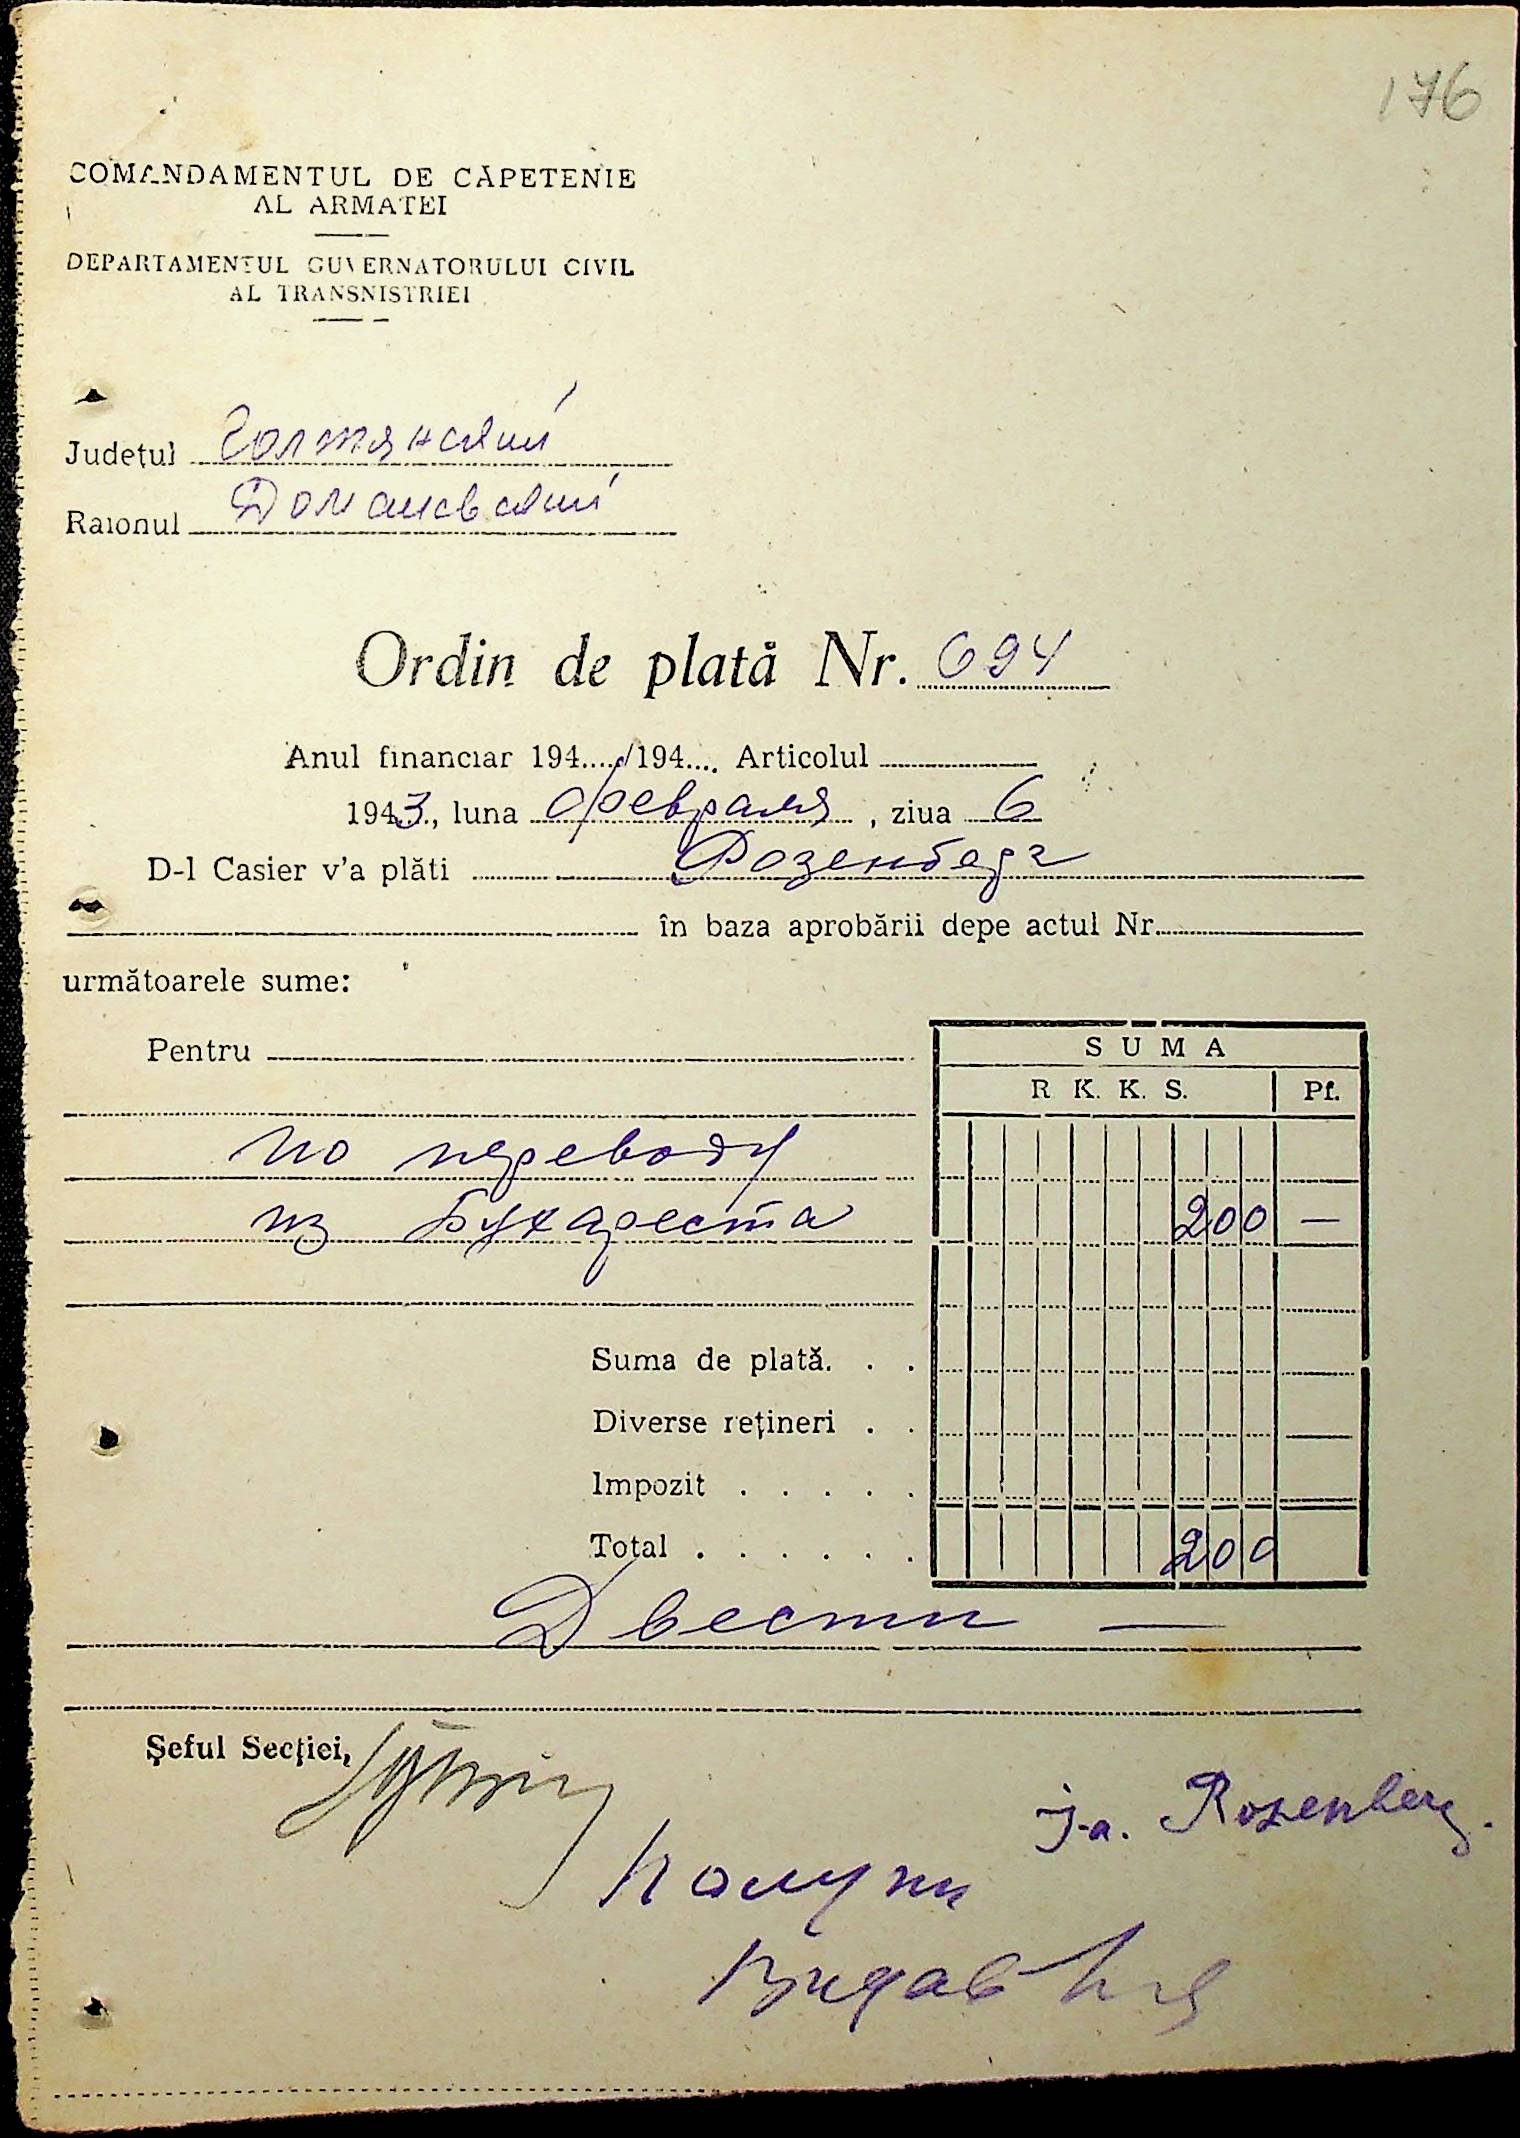 176
COMANDAMENTUL DE CĂPETENIE
AL ARMATEI
DEPARTAMENTUL GUVERNATORULUI CIVIL
AL TRANSNISTRIEI
Județul Голтянский
Raionul Доманевский
Ordin de plată Nr. 694
Anul financiar 194..../194.... Articolul
1943, luna февраля, ziua 6
D-l Casier v'a plăti Розенберг
în baza aprobării depe actul Nr.
următoarele sume:
Pentru
SUMA
R K. K. S. Pf.
по переводу
из Бухареста 200 —
Suma de plată. . .
Diverse rețineri . .
Impozit . . . . .
Total . . . . . . 200
Двести —
Șeful Secției,
J-a. Rosenberg.